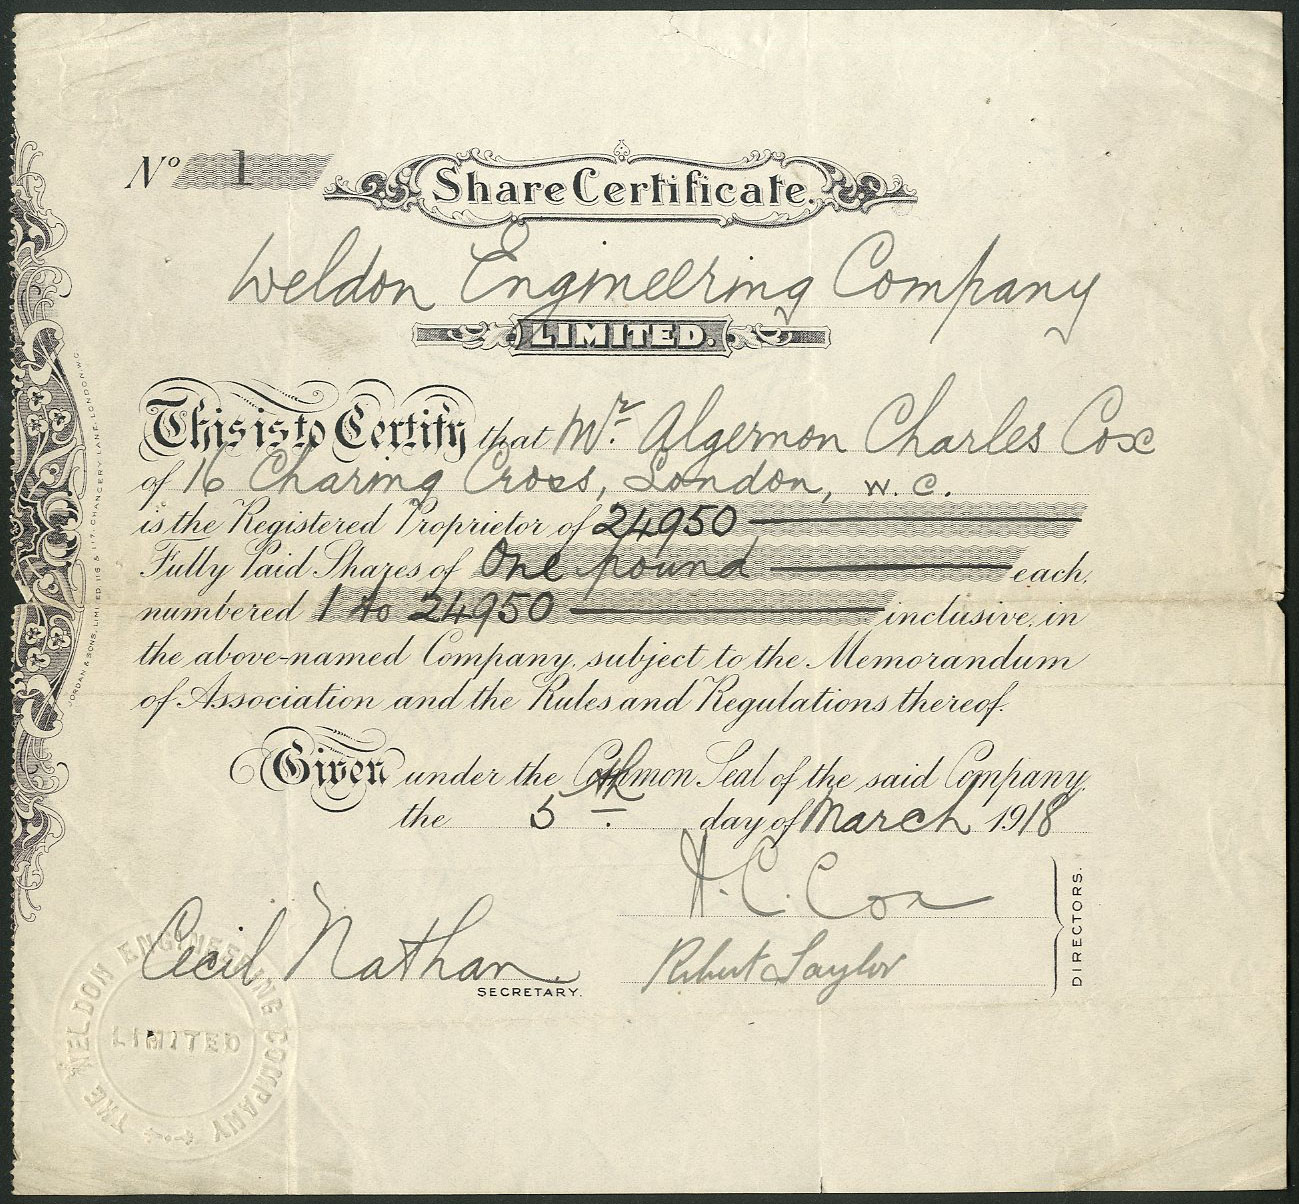 No 1 Share Certificate.
Weldon Engineering Company
LIMITED.
This is to Certify that Mr. Algernon Charles Cox
of 16 Charing Cross, London, W. C.
is the Registered Proprietor of 24950
Fully Paid Shares of One pound each,
numbered 1 to 24950 inclusive, in
the above-named Company, subject to the Memorandum
of Association and the Rules and Regulations thereof.
Given under the Common Seal of the said Company,
the 5th day of March 1918
A. C. Cox
Cecil Nathan
SECRETARY.
Robert Taylor
DIRECTORS.
THE WELDON ENGINEERING COMPANY
LIMITED
JORDAN & SONS, LIMITED 116 & 117, CHANCERY LANE, LONDON, W.C.